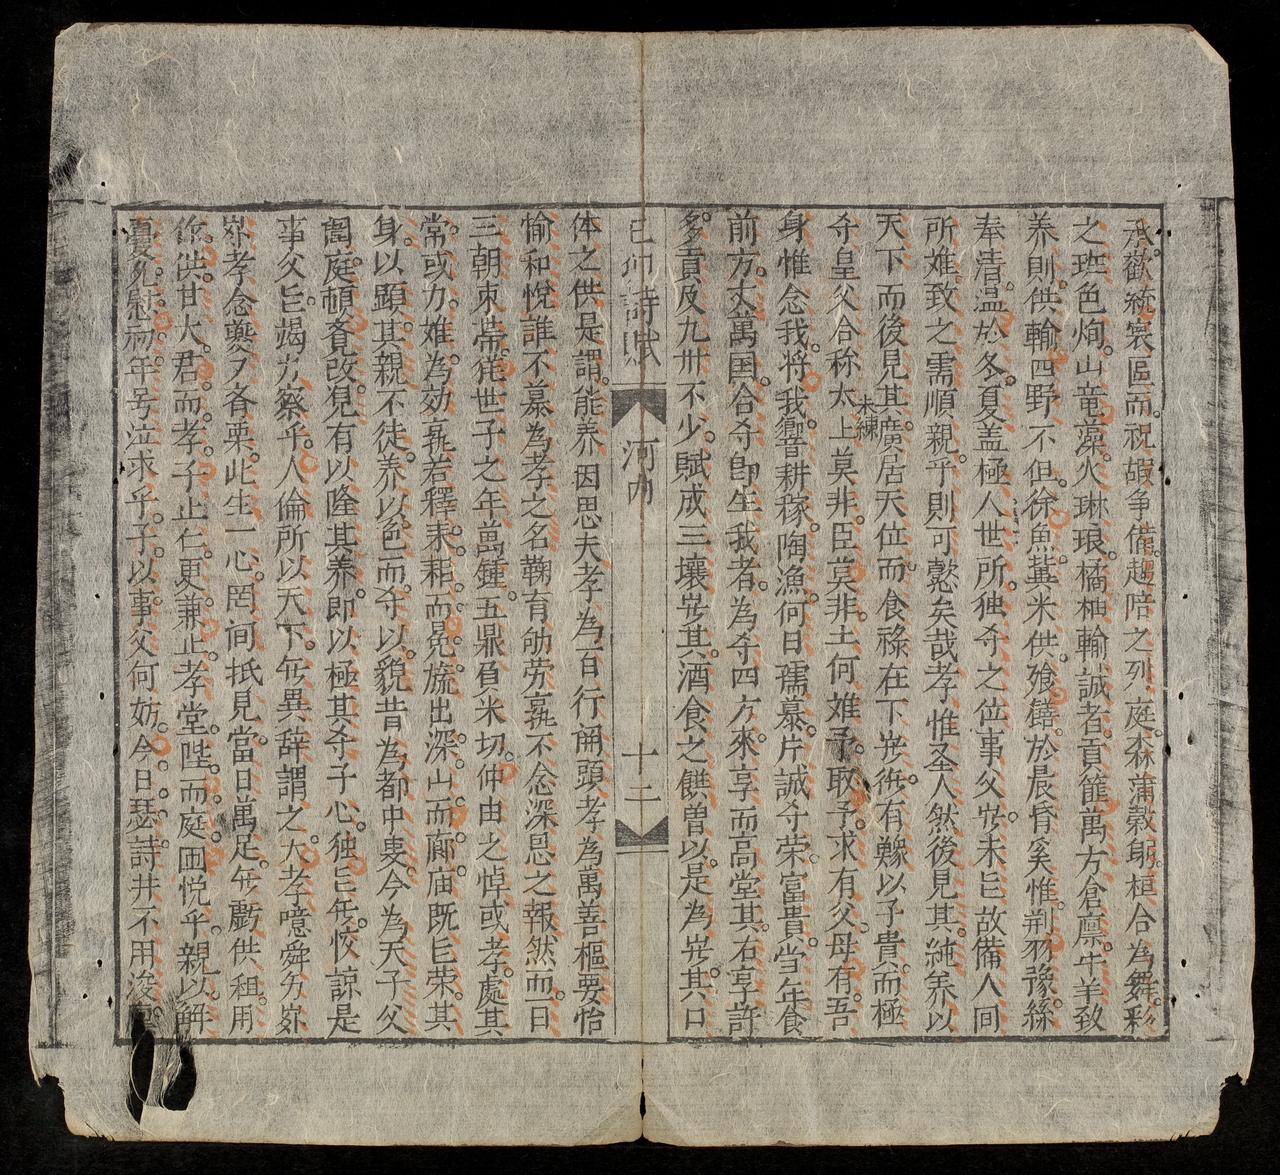 承歡統寰區而祝嘏争備趍陪之列庭森蒲穀朗桓合為舞彩
之班色炯山竜藻火琳琅橘柚輸誠者貢篚萬方倉廪牛羊致
养則供輸四野不但徐魚冀米供飱饍於晨昏奚惟荆羽豫絲
奉清温於冬夏盖極人世所独夸之位事父岂未㠯故備人间
所难致之需順親乎則可懿矣哉孝惟圣人然後見其純养以
天下而後見其廣居天位而食禄在下岂徒有難以子貴而極
夸皇父合称太上莫非臣莫非土何难予取予求有父母有吾
未練
身惟念我将我響耕稼陶漁何日孺慕片誠夸荣富貴当年食
前方丈萬国合夸即生我者為夸四方來享而高堂其右享許
多貢及九卅不少賦成三壤岂其酒食之饌曽以是為岂其口
己卯詩賦
河内
十三
体之供是謂能养因思夫孝為百行開頭孝為萬善樞要怡
愉和悅誰不慕為孝之名鞠育劬劳孰不念深恩之報然而一日
三朝束帯從世子之年萬鍾五鼎負米切仲由之悼或孝處其
常或力难為効孰若釋耒耜而冕旒出深山而廊庙既㠯荣其
身以顯其親不徒养以色而夸以貌昔為都中叟今為天子父
閨庭頓夸覓改見有以隆其养即以極其夸子心独㠯年恔諒是
事父㠯竭力察乎人倫所以天下年異辞謂之大孝噫舜夯嶽
嶽孝念夔夔斉栗此生一心罔间抵見當日萬足年虧供租用
條供甘大君而孝子止仁更兼止孝堂陛而庭囬悦乎親以解
憂允慰初年号泣求乎子以事父何妨今日瑟詩井不用浚